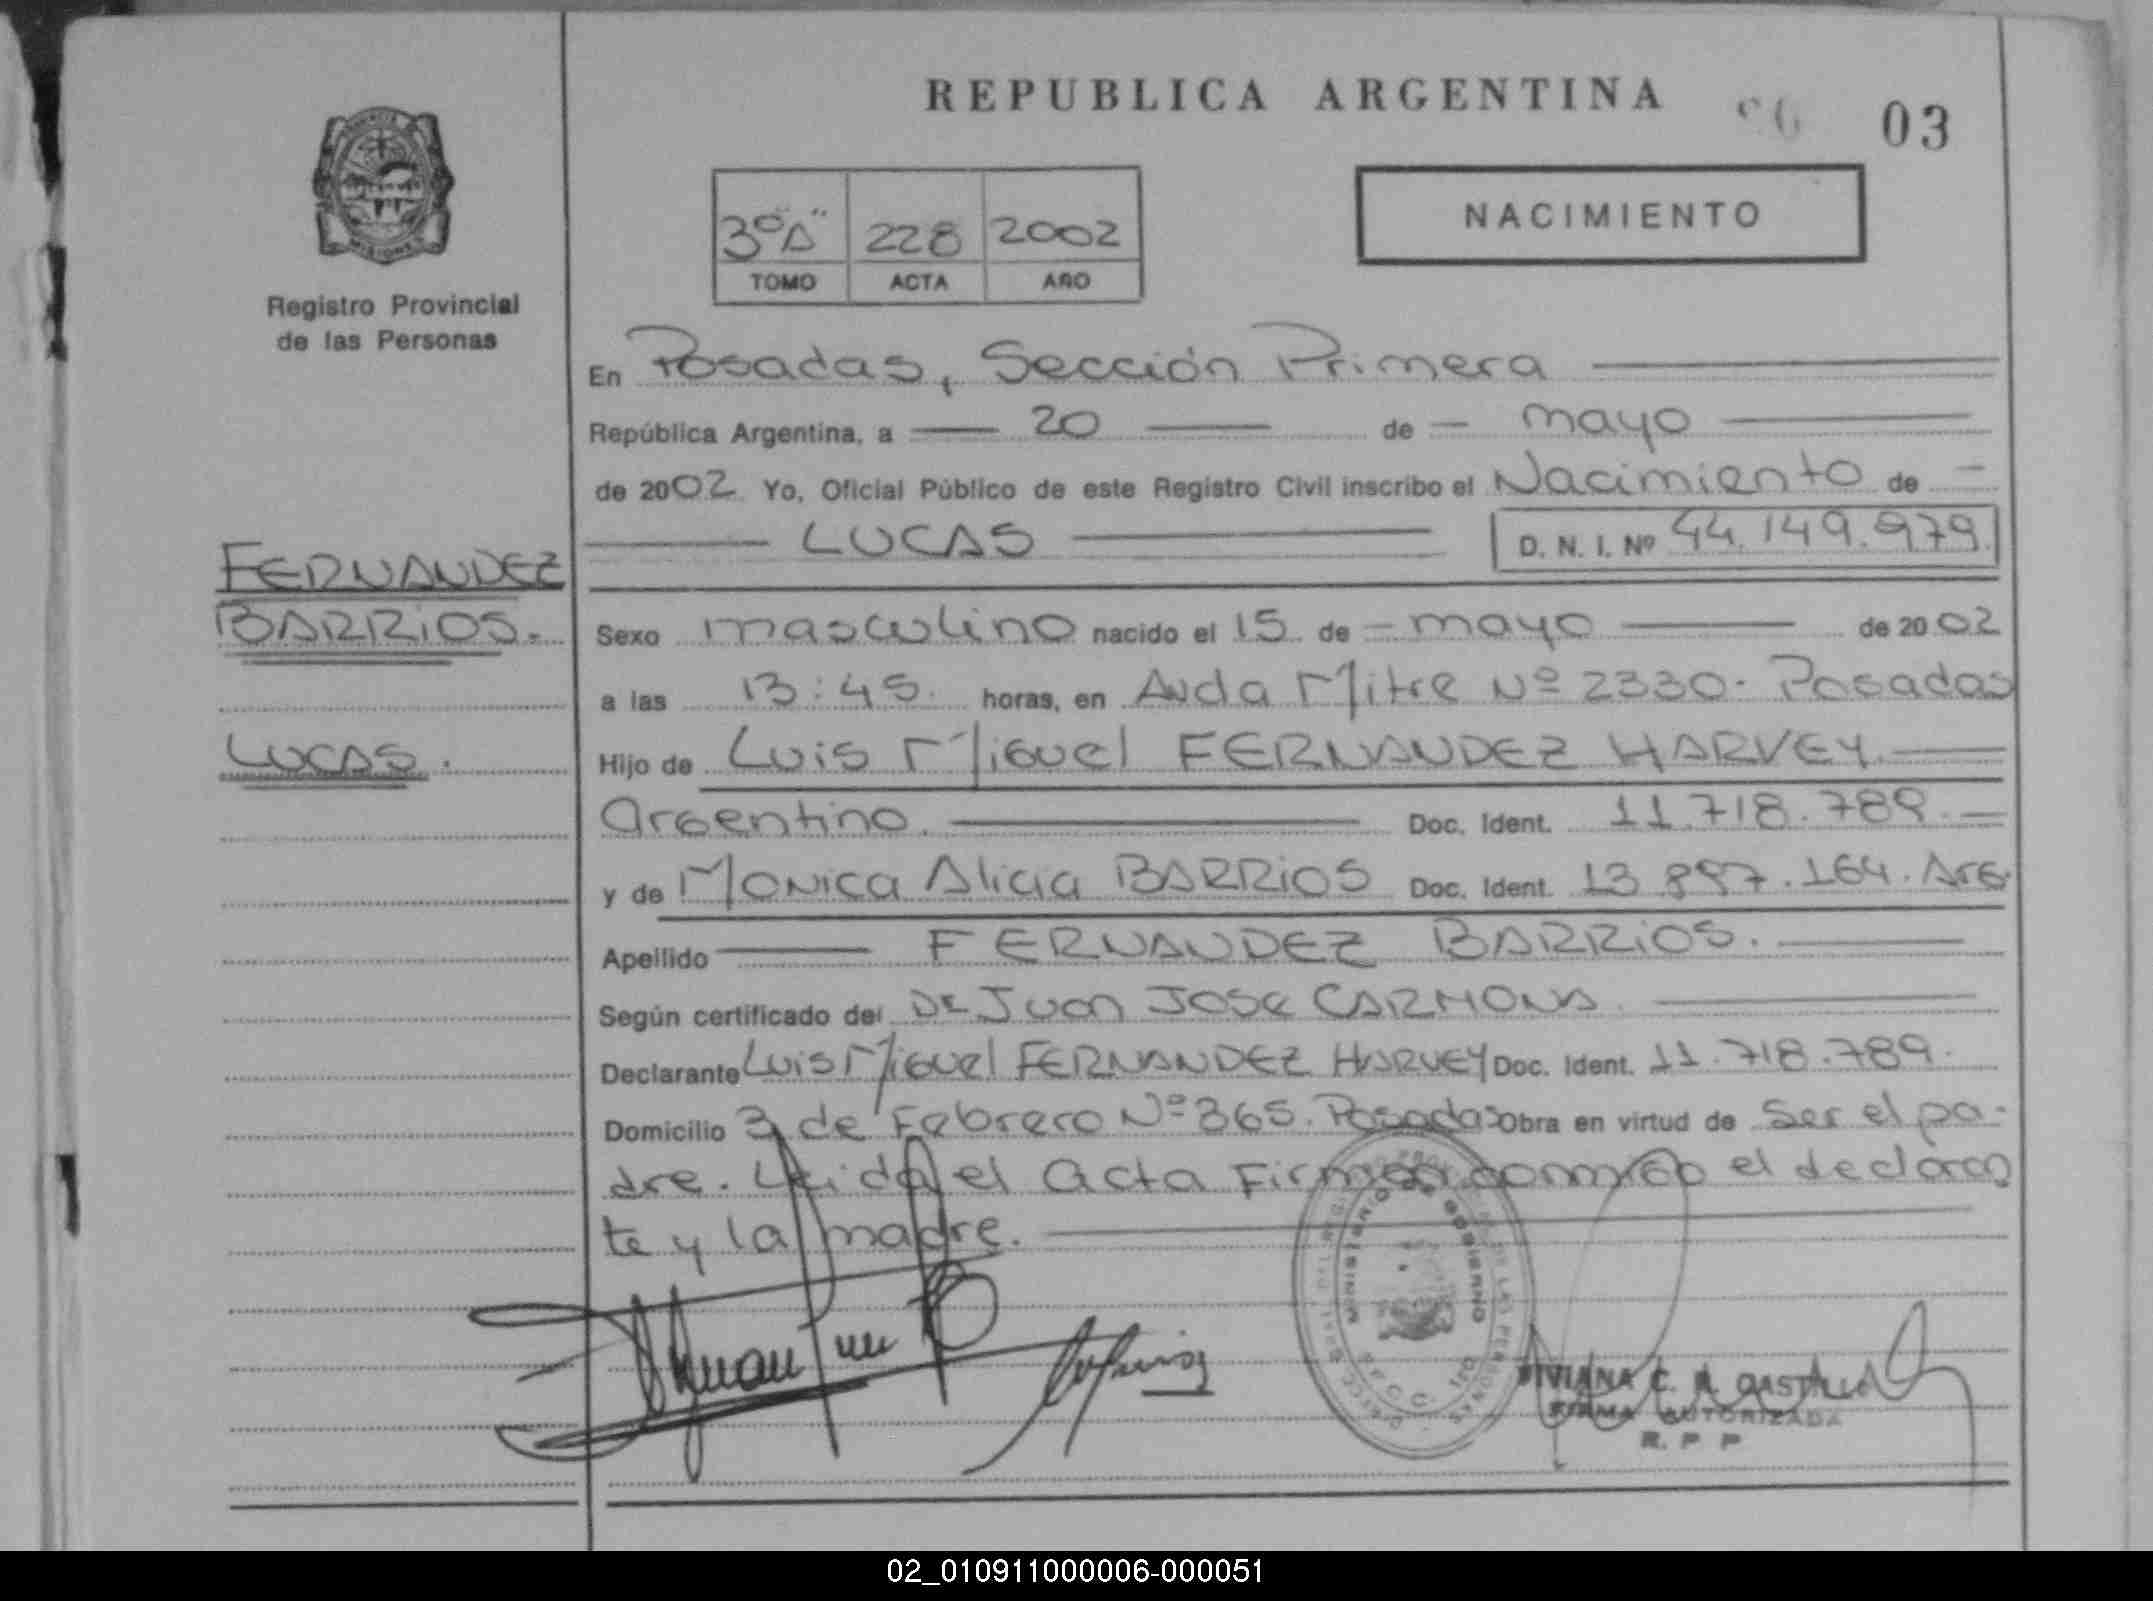 REPUBLICA ARGENTINA
03
3º "A" 228 2002
TOMO ACTA AÑO
NACIMIENTO
Registro Provincial
de las Personas
En Posadas, Sección Primera
República Argentina, a 20 de mayo
de 2002 Yo, Oficial Público de este Registro Civil inscribo el Nacimiento de
LUCAS D. N. I. Nº 44.149.979
FERNANDEZ
BARRIOS.
LUCAS.
Sexo masculino nacido el 15 de mayo de 2002
a las 13:45. horas, en Avda Mitre Nº 2330. Posadas
Hijo de Luis Miguel FERNANDEZ HARVEY.
Argentino. Doc. Ident. 11.718.789.
y de Monica Alicia BARRIOS Doc. Ident. 13.897.164. Arg.
Apellido FERNANDEZ BARRIOS.
Según certificado del Dr Juan Jose CARMONA.
Declarante Luis Miguel FERNANDEZ HARVEY Doc. Ident. 11.718.789.
Domicilio 3 de Febrero Nº 365. Posadas Obra en virtud de ser el pa-
dre. Leida el acta Firman conmigo el declaran
te y la madre.
VIVIANA C. A. CASTILLO
FIRMA AUTORIZADA
R. P P
02_010911000006-000051